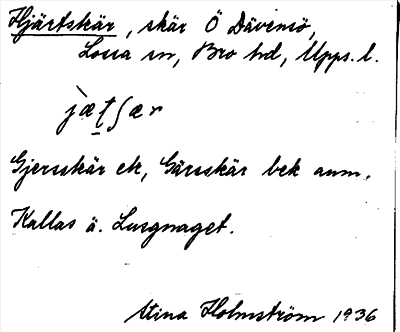 Hjärtskär, skär Ö Dävensö,
Lossa sn, Bro hd, Upps. l.
Gjersskär ek, Gärsskär bek anm.
Kallas ä. Lusgnaget.
Stina Holmström 1936